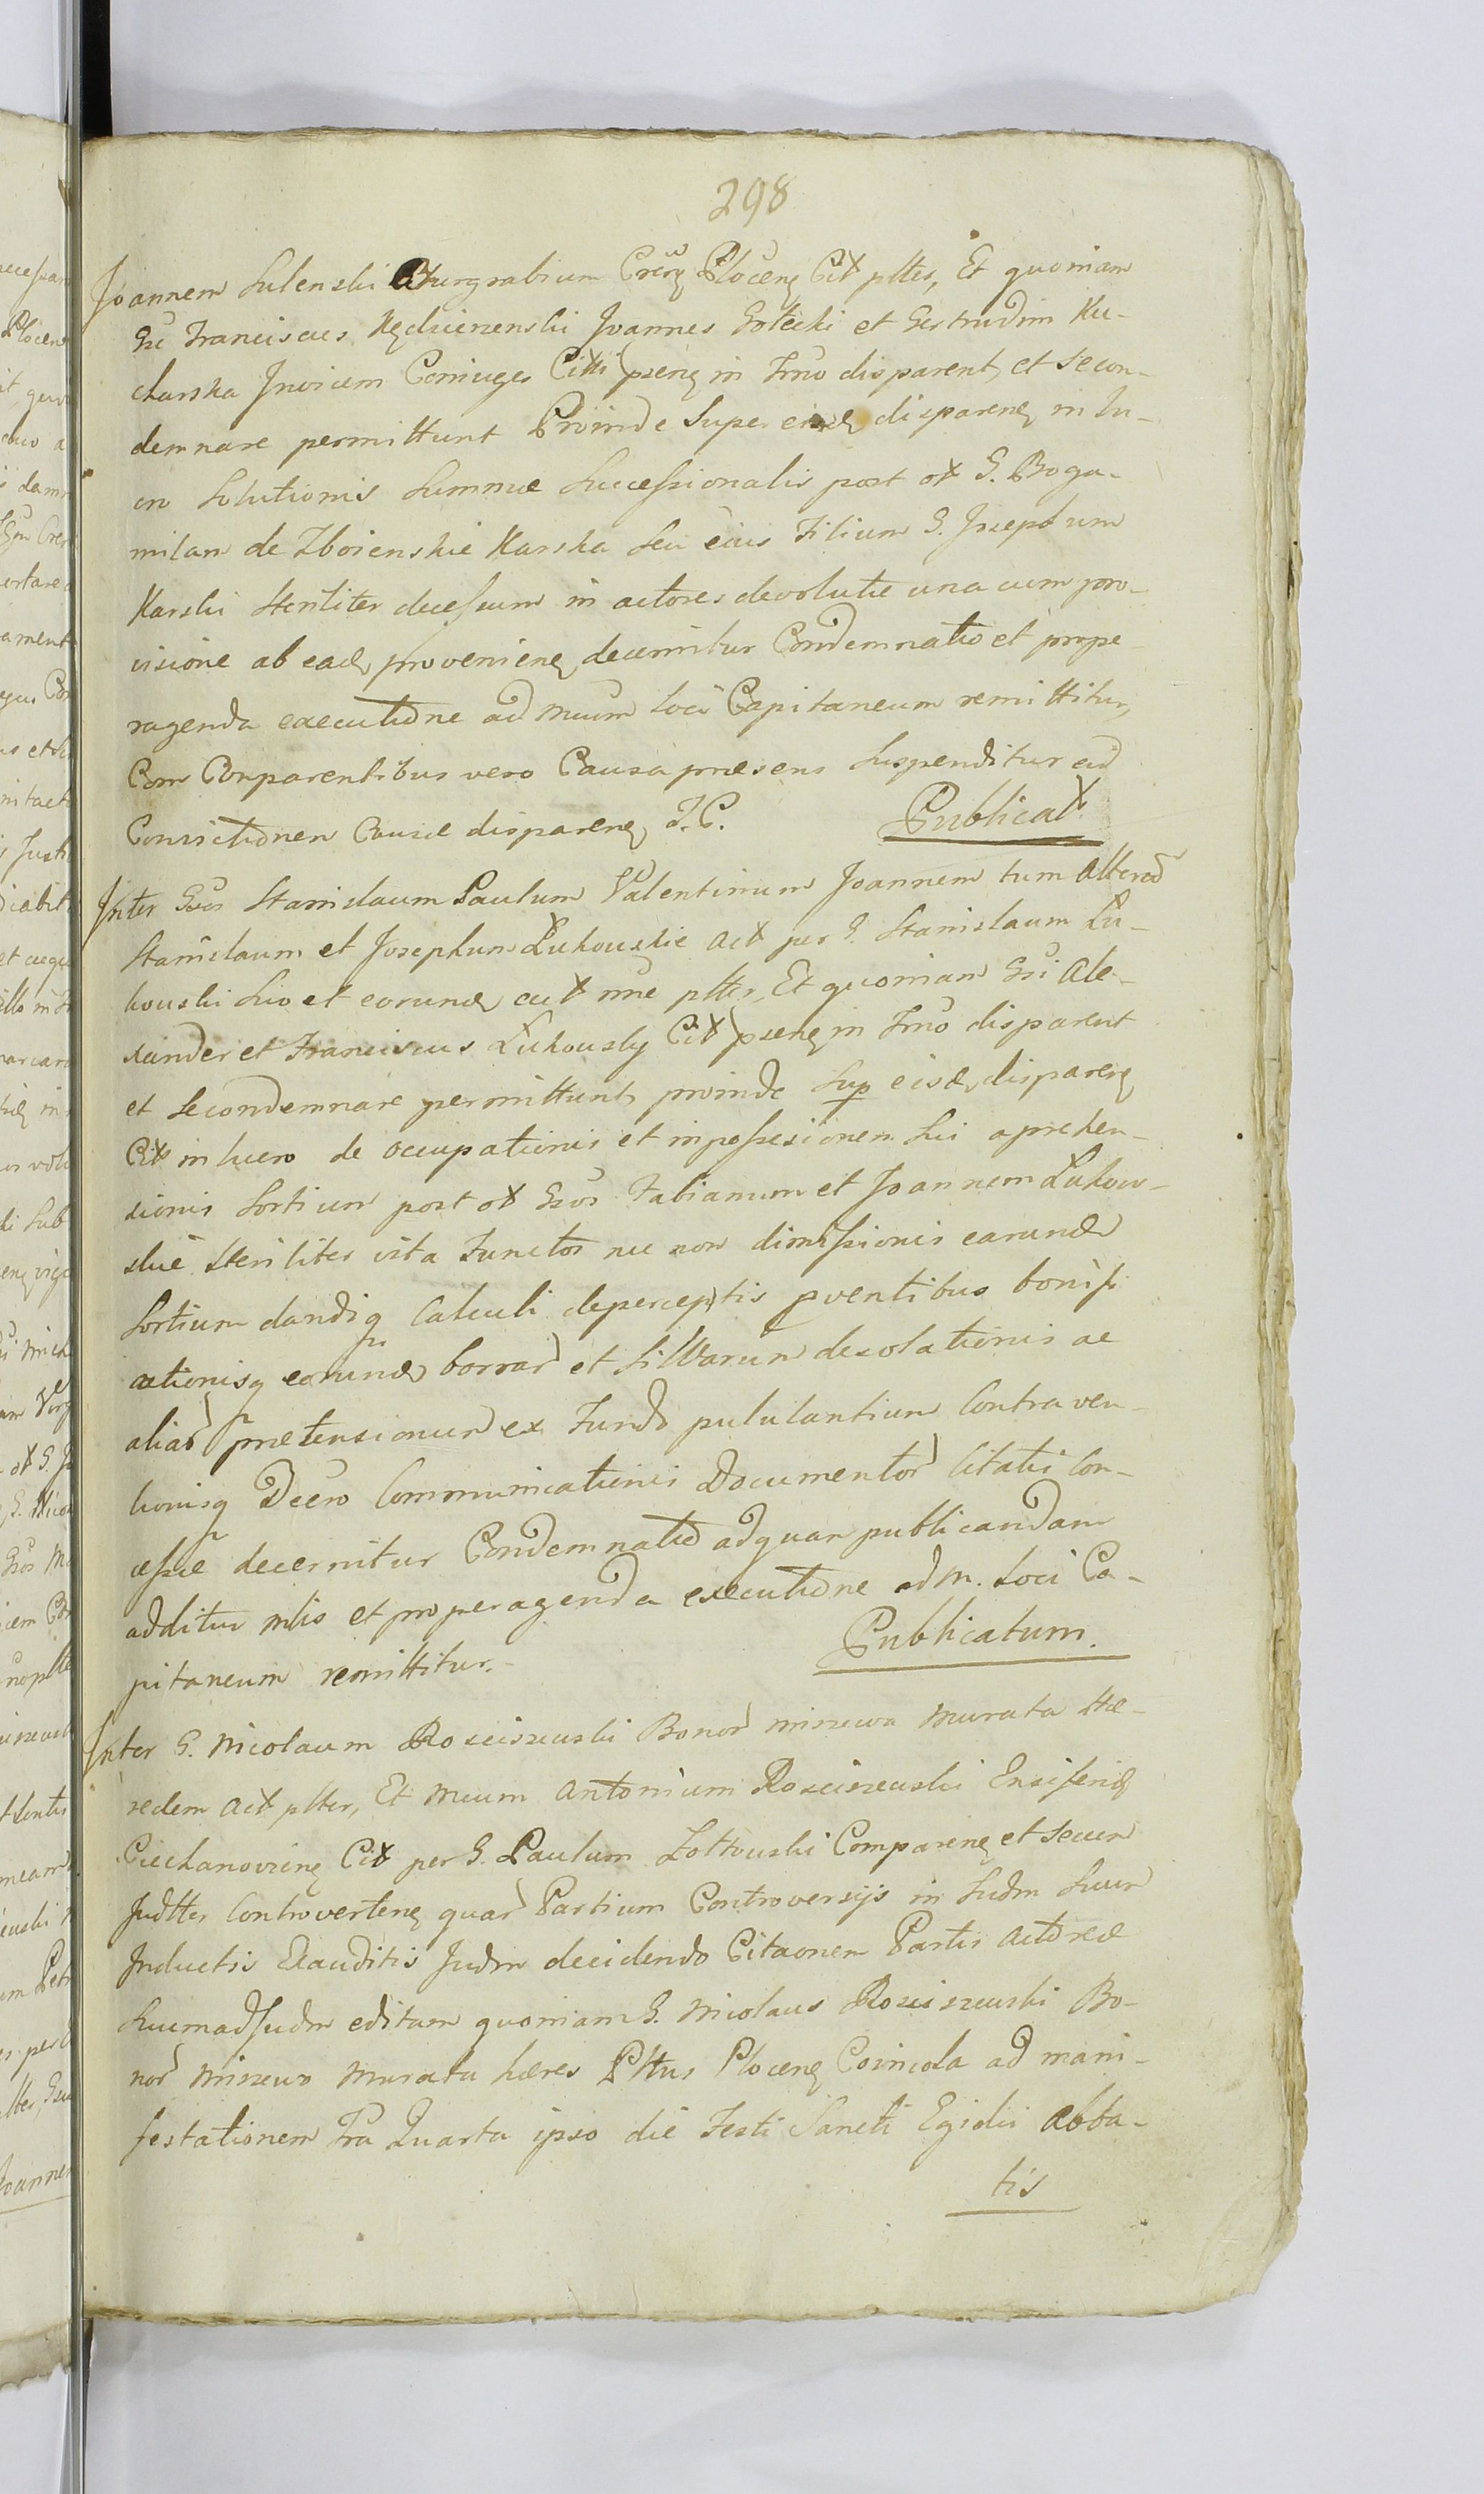 298
Joannem Sulenski Burgrabium Crēs Plocens Citt pltes, Et quoniam
Gsi Franciscus Kędzierzenski Joannes Gotecki et Gertrudim Ku-
charska Invicem Coniuges Citti psens in Trno disparent, et se con-
demnare permittunt Proinde Super eisd disparens in lu-
cro Solutionis Summæ Successionalis post ot G. Bogu-
milam de Zboienskie Karska seu eius Filium G. Josephum
Karski steriliter decessum in actores devolutæ una cum pro-
visione ab ead proveniens decernitur Condemnatio et prope
ragenda executione ad Mcum loci Capitaneum remittitur,
Cum Comparentibus vero Causa præsens Suspenditur ad
Convictionem Causæ disparens J. C. Publicat
Inter Gsos Stanislaum Paulum Valentinum Joannem tum Alterum
Stanislaum et Josephum Łukowskie Act per G. Stanislaum Łu-
kowski Suo et eorund act nne pltes, Et quoniam Gsi Ale-
xander et Franciscus Łukowscy Citt psens in Trno disparent
et se condemnare permittunt, proinde Sup eisd disparens
Citt in lucro de occupationis et in possesionem Sui aprehen-
sionis Sortium post ot Gsos Fabianum et Joannem Łukow-
skie steriliter vita functos nec non dimissionis earund
Sortium dandiq Calculi de perceptis pventibus bonifi
cationisq eorund borrar et Silvarum desolationis ac
aliar prætensionum ex Fundo pululantium Contraven-
tionisq Decro Communicationis Documentor Citatis Con-
cessæ decernitur Condemnatio ad quam publicandam
additur mlis et pro peragenda executione ad M. Loci Ca-
pitaneum remittitur.- Publicatum.
Inter G. Nicolaum Rosciszewski Bonor Miszewa Murata Hæ-
redem Act pltes, Et Mcum Antonium Rosciszewski Ensiferid
Ciechanoviens Citt per G. Paulum Zołtowski Comparens et Secum
Judtter Controvertens quar Partium Controversijs in Judm Suum
Inductis Exauditis Judm decidendo Citaonem Partis Actoreæ
Suum ad Judm editam quoniam G. Nicolaus Rosciszewski Bo-
nor Miszewo Murata hæres Pltus Plocens Coincola ad mani-
festationem Fra Quarta ipso die Festi Sancti Egidii Abba-
tis